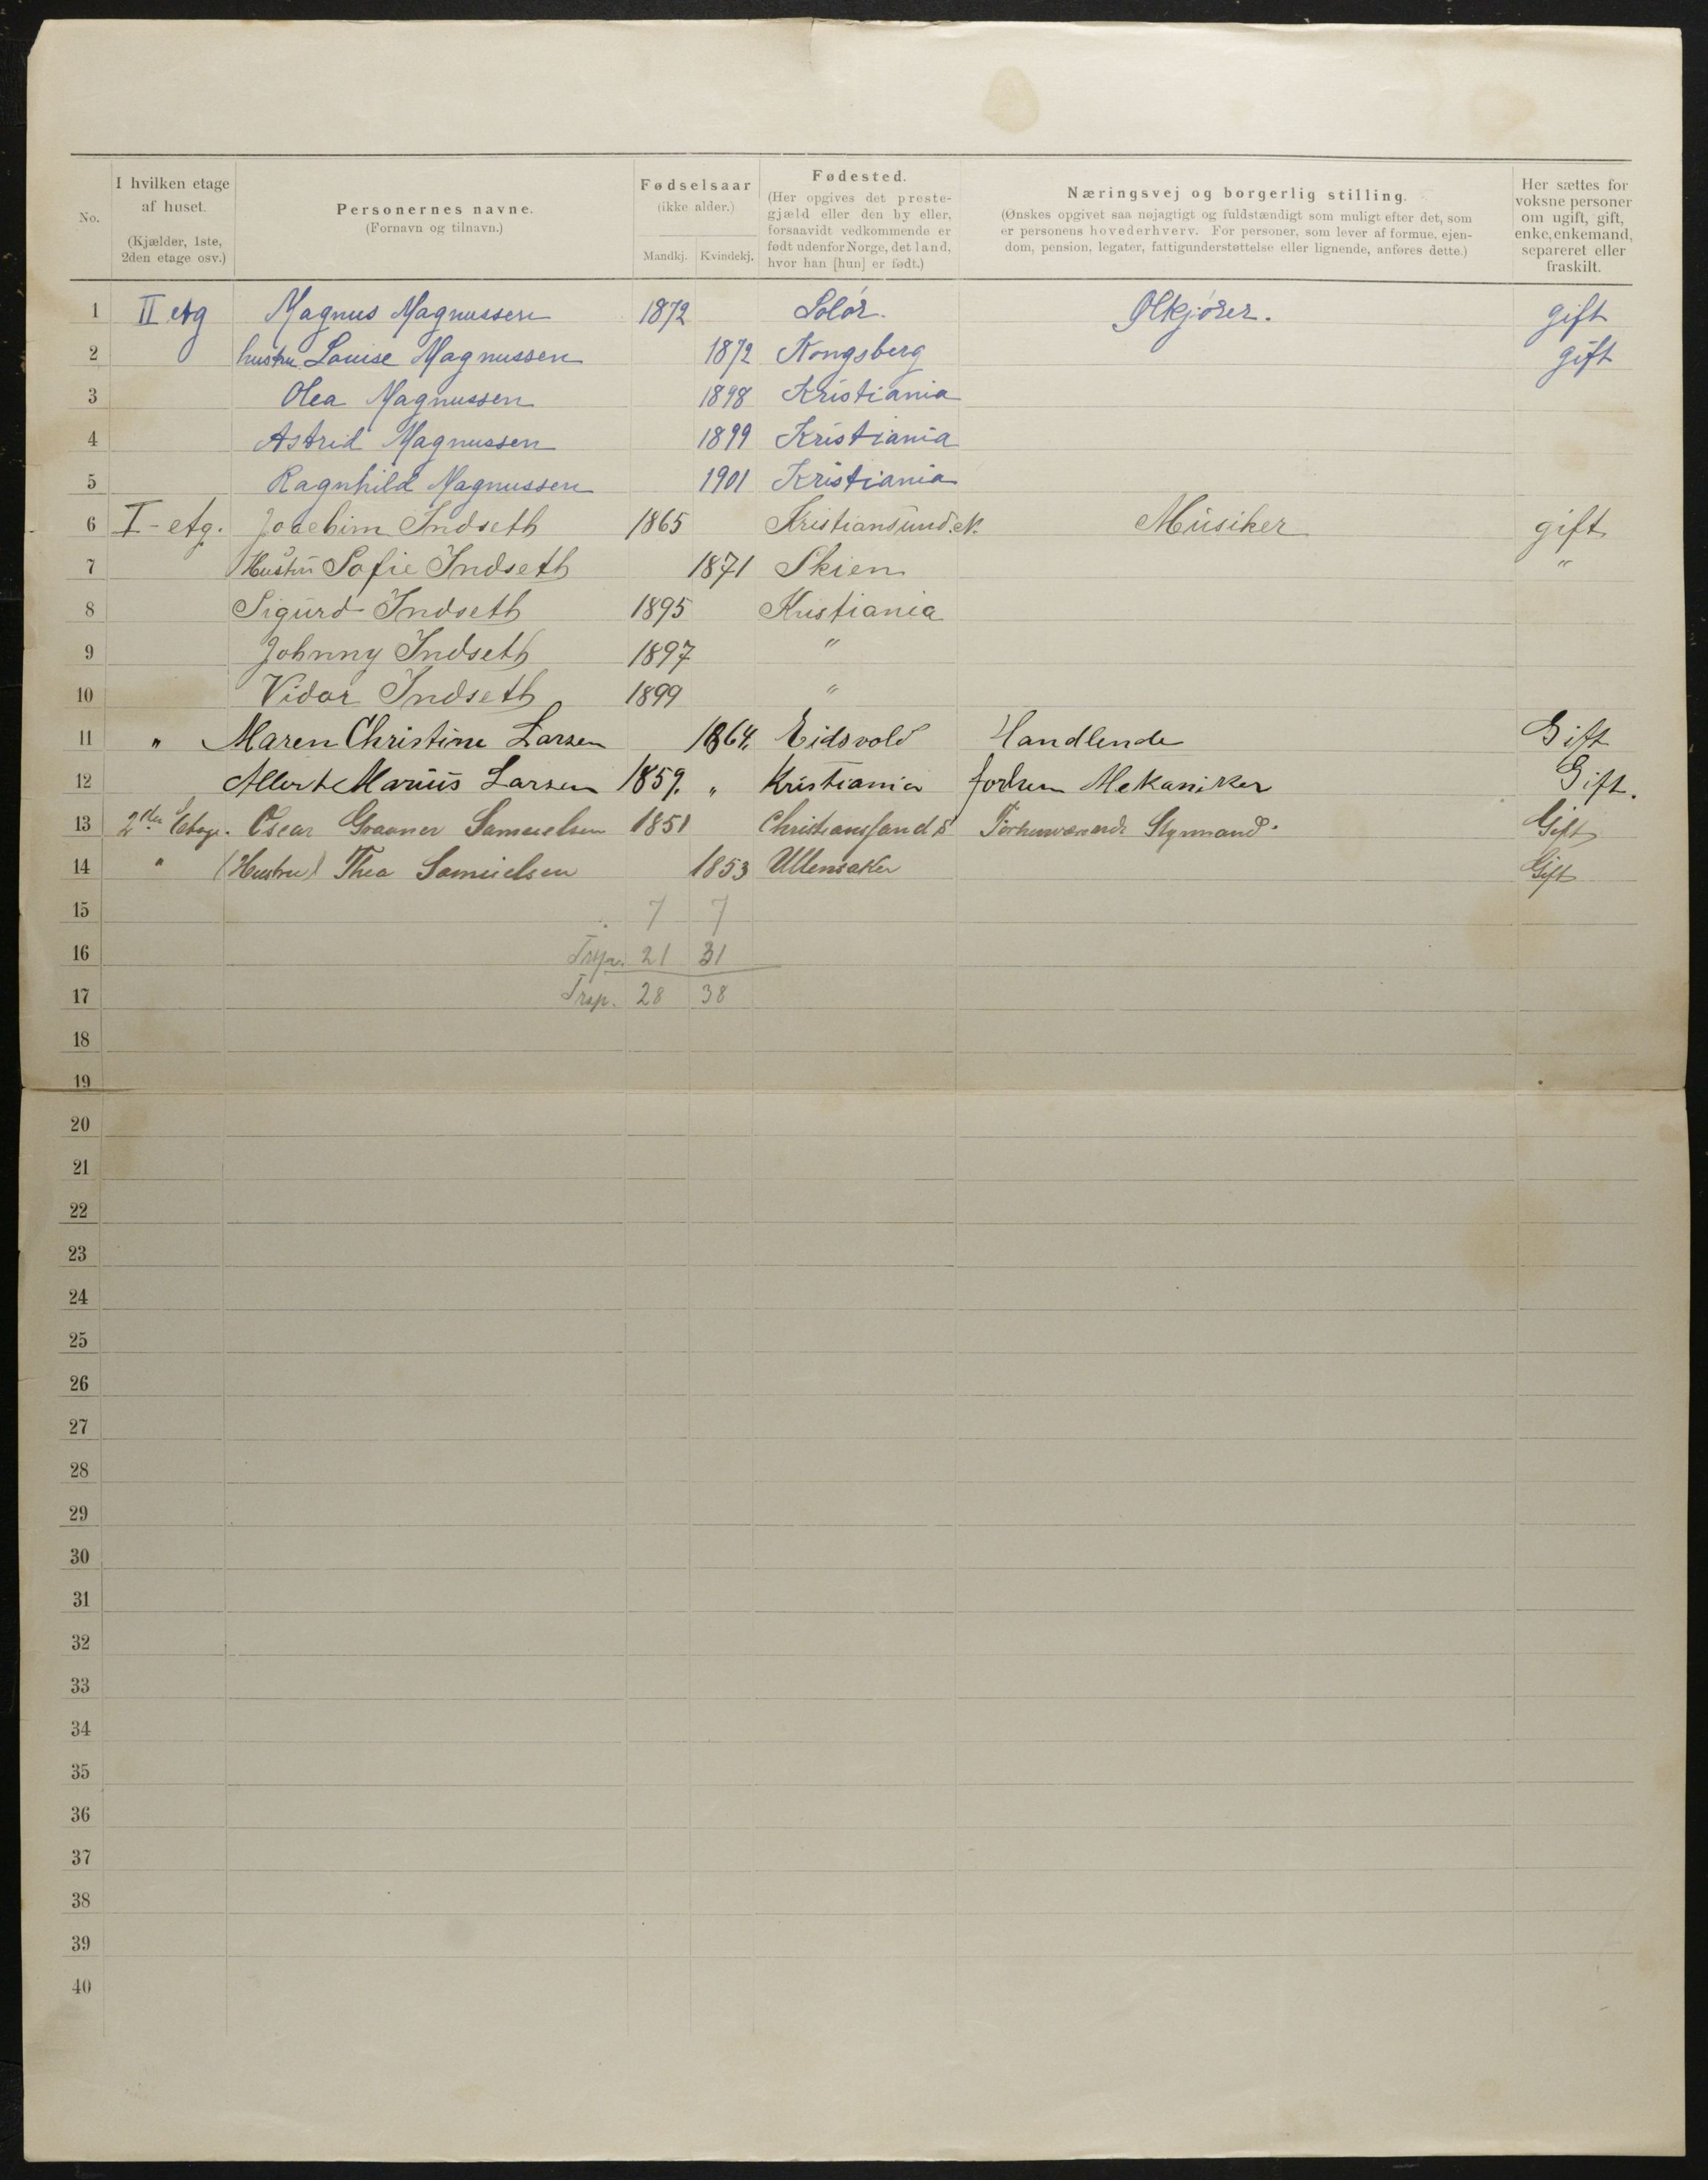 No. | I hvilken etage af huset. (Kjælder, 1ste, 2den etage osv.) | Personernes navne. (Fornavn og tilnavn.) | Fødselsaar (ikke alder.) Mandkj. | Kvindekj. | Fødested. (Her opgives det prestegjæld eller den by eller, forsaavidt vedkommende er født udenfor Norge, det land, hvor han [hun] er født.) | Næringsvej og borgerlig stilling. (Ønskes opgivet saa nøjagtigt og fuldstændigt som muligt efter det, som er personens hovederhverv. For personer, som lever af formue, ejendom, pension, legater, fattigunderstøttelse eller lignende, anføres dette.) | Her sættes for voksne personer om ugift, gift, enke, enkemand, separeret eller fraskilt.
1 II etg Magnus Magnussen 1872 Solør. Ølkjører. gift
2 hustru Louise Magnussen 1872 Kongsberg gift
3 Olea Magnussen 1898 Kristiania
4 Astrid Magnussen 1899 Kristiania
5 Ragnhild Magnussen 1901 Kristiania
6 I - etg. Joachim Indseth 1865 Kristiansund. N. Musiker gift
7 Hustru Sofie Indseth 1871 Skien "
8 Sigurd Indseth 1895 Kristiania
9 Johnny Indseth 1897 "
10 Vidar Indseth 1899 "
11 " Maren Christine Larsen 1864. Eidsvold Handlende Gift
12 Marius Larsen 1859. " Kristiania Mekaniker Gift.
13 2den Etage. Oscar Samuelsen 1851 Christianssand S Styrmand. Gift
14 " (Hustru) Thea Samuelsen 1853 Ullensaker Gift
15 7 7
16 Trsp. 21 31
17 Trsp. 28 38
18
19
20
21
22
23
24
25
26
27
28
29
30
31
32
33
34
35
36
37
38
39
40